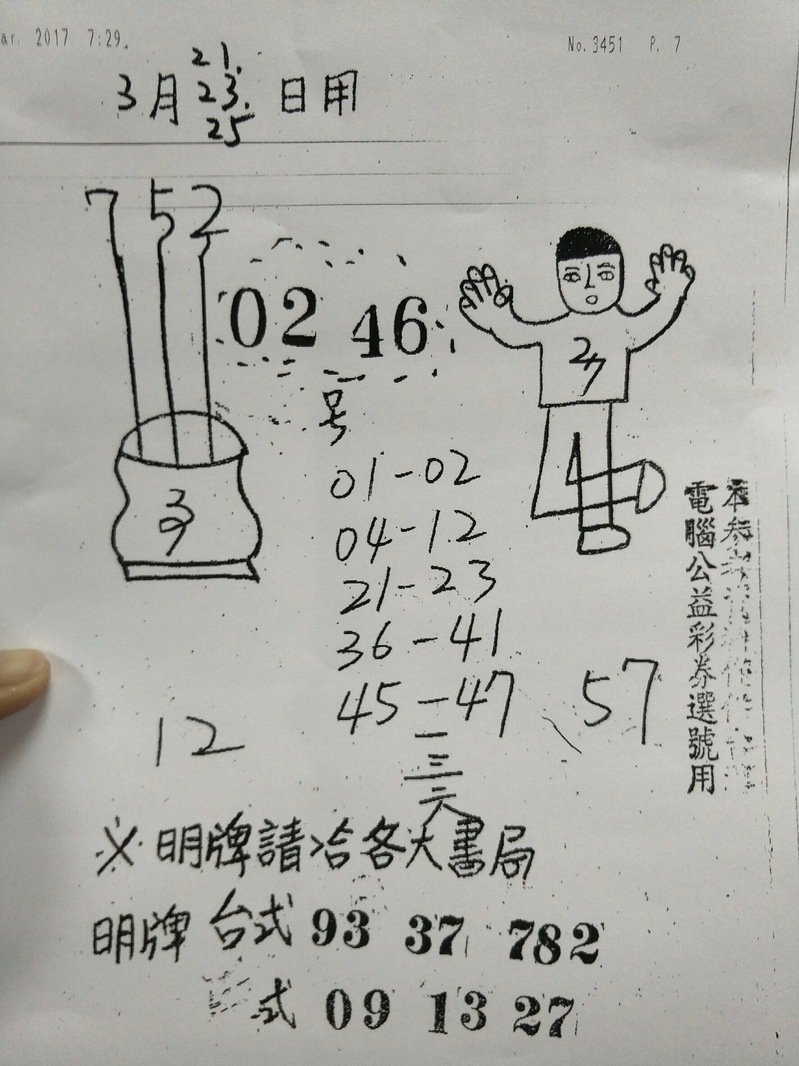 ar. 2017 7:29. No.3451 P. 7
21.
3月 23. 日用
25
7 5 2
02 46
号
27
01-02
04-12
21-23
36-41
45-47
57
12
一
三
六
※明牌請洽各大書局
明牌 台式 93 37 782
式 09 13 27
電腦公益彩券選號用
本參考